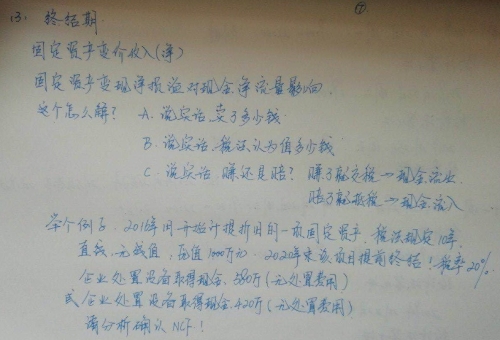 (3) 终结期 ⑦.
固定资产变价收入(净)
固定资产变现净损溢对现金净流量影响.
这个怎么解? A. 说实话, 卖了多少钱
B. 说实话, 税法认为值多少钱
C. 说实话. 赚还是赔? 赚了就交税→现金流出
赔了就抵税→现金流入
举个例子: 2016年开始计提折旧的一项固定资产, 税法规定10年.
直线, 无残值, 原值1000万元. 2020年末该项目提前终结! 税率20%
企业处置设备取得现金. 580万(无处置费用)
或企业处置设备取得现金. 420万(无处置费用)
请分析确认NCF!